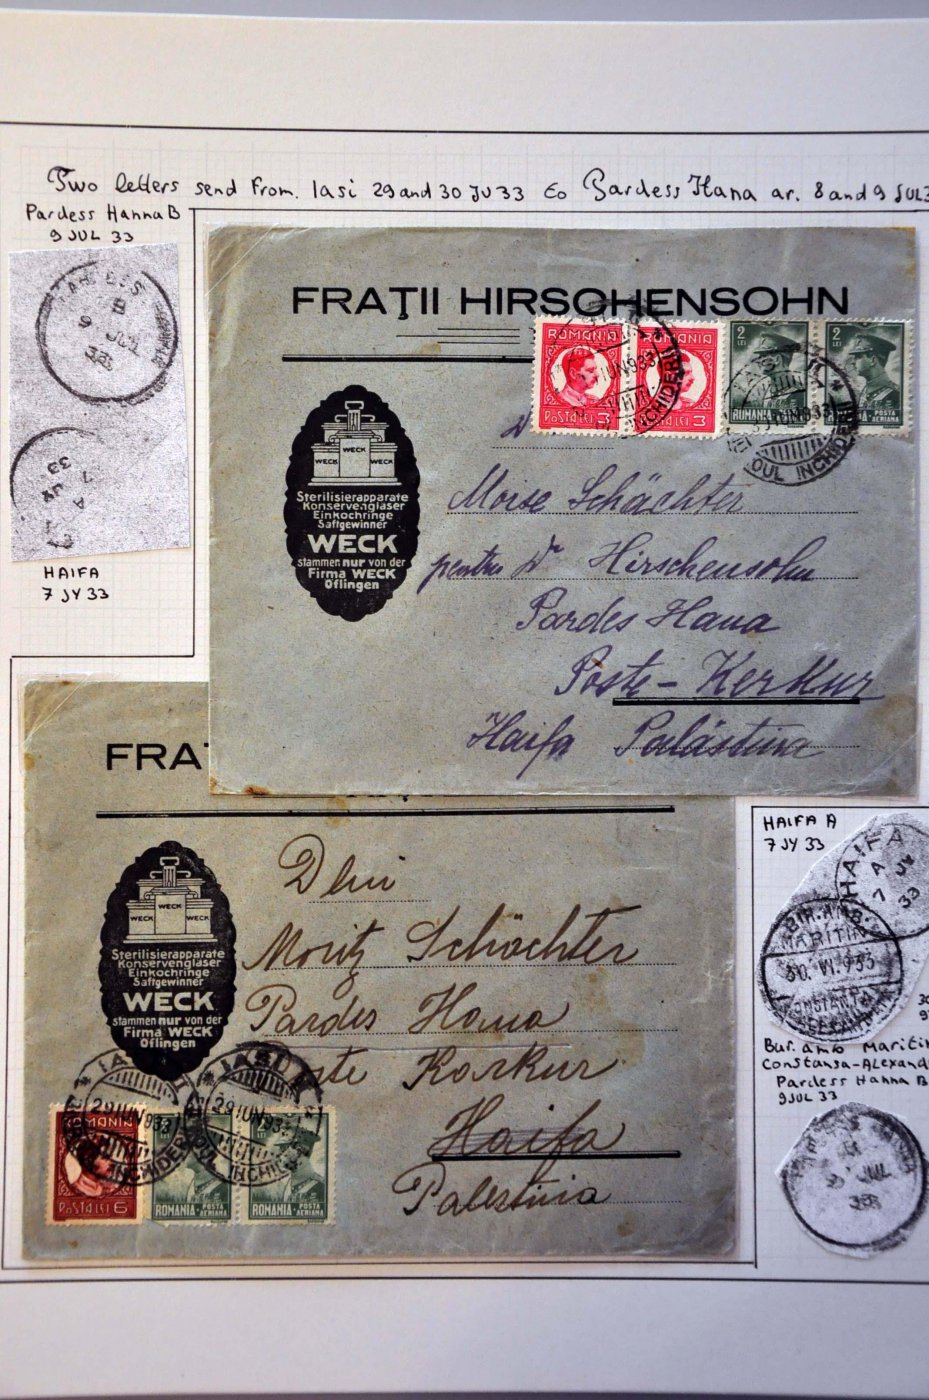 Two letters send From. Iasi 29 and 30 JU 33 to Pardess Hana ar. 8 and 9 JUL 3
Pardess Hanna B
9 JUL 33
B
9 JUL
33
HAIFA
7 JY 33
FRAŢII HIRSCHENSOHN
ROMANIA
POSTA LEI 3
ROMANIA
POSTA LEI 3
2 LEI
ROMANIA
2 LEI
POSTA AERIANA
IUN 933
INCHIDERII
IASI
OUL INCHIDERII
WECK
WECK WECK
Sterilisierapparate
Konservengläser
Einkochringe
Saftgewinner
WECK
stammen nur von der
Firma WECK
Öflingen
Moise Schächter
pentru Dr Hirschensohn
Pardes Hana
Poste-Kerkur
Haifa Palästina
FRAŢ
WECK
WECK WECK
Sterilisierapparate
Konservengläser
Einkochringe
Saftgewinner
WECK
stammen nur von der
Firma WECK
Öflingen
Dlui
Moritz Schächter
Pardes Hana
Poste Karkur
Haifa
Palestina
IASI
29 IUN 933
INCHIDERII
IASI
29 IUN 933
OUL INCHIDERII
ROMANIA
POSTA LEI 6
LEI
ROMANIA POSTA AERIANA
ROMANIA POSTA AERIANA
HAIFA A
7 JY 33
HAIFA
A
7 JY 33
BIR. AMB.
MARITIM
30. VI. 933
CONSTANTA
ALEXANDRIA
Bur. amb Maritim
Constansa-Alexand
Pardess Hanna B
9 JUL 33
PARDESS HANNA
B
9 JUL
33